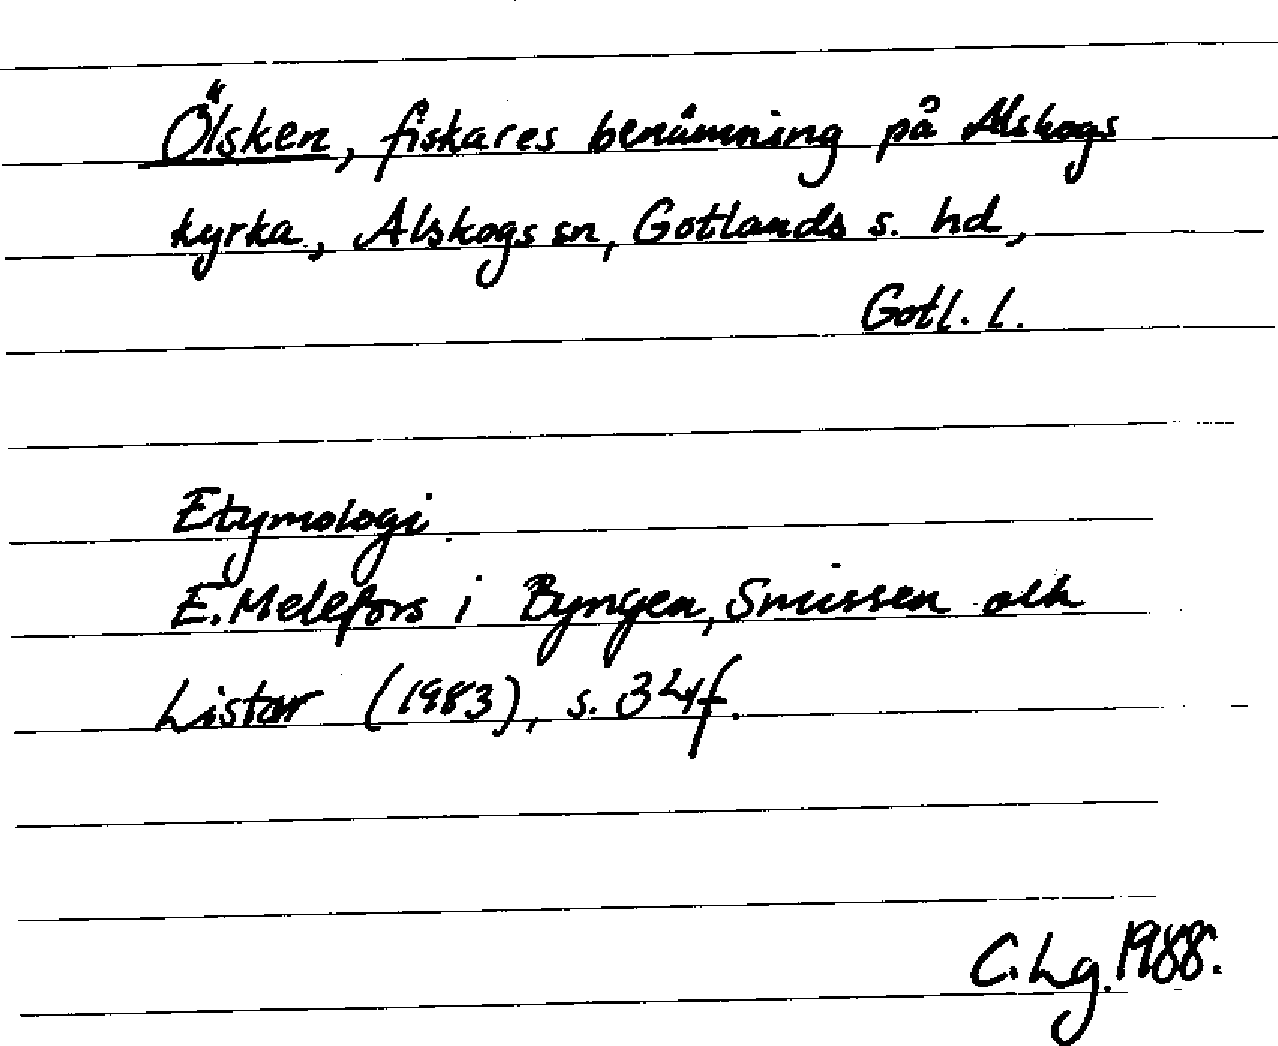 Ölsken, fiskares benämning på Alskogs
kyrka, Alskogs sn, Gotlands s. hd,
Gotl. l.
Etymologi.
E. Melefors i Byngen, Snissen och
Listar (1983), s. 34f.
C. Lg. 1988.